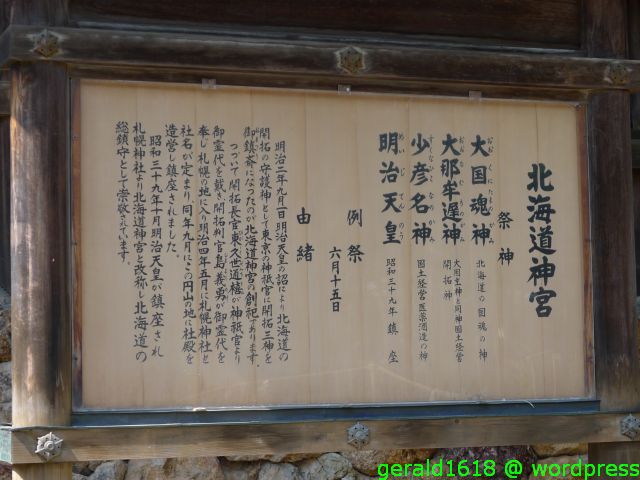 北海道神宮
祭神
大国魂神
おおくにたまのかみ
北海道の国魂の神
大那牟遅神
おおなむちのかみ
大国主神と同神国土経営
開拓神
少彦名神
すくなひこなのかみ
国土経営医薬酒造の神
明治天皇
めいじてんのう
昭和三十九年鎮座
例祭
六月十五日
由緒
明治二年九月一日明治天皇の詔により北海道の
開拓の守護神として東京の神祇官に開拓三神を
御鎮斎になったのが北海道神宮の創祀であります。
つづいて開拓長官東久世通禧が神祇官より
御霊代を戴き開拓判官島義勇が御霊代を
奉し札幌の地に入り明治四年五月に札幌神社と
社名が定まり、同年九月にこの円山の地に社殿を
造営し鎮座されました。
昭和三十九年十月明治天皇が鎮座され
札幌神社より北海道神宮と改称し北海道の
総鎮守として崇敬されています。
gerald1618 @ wordpress